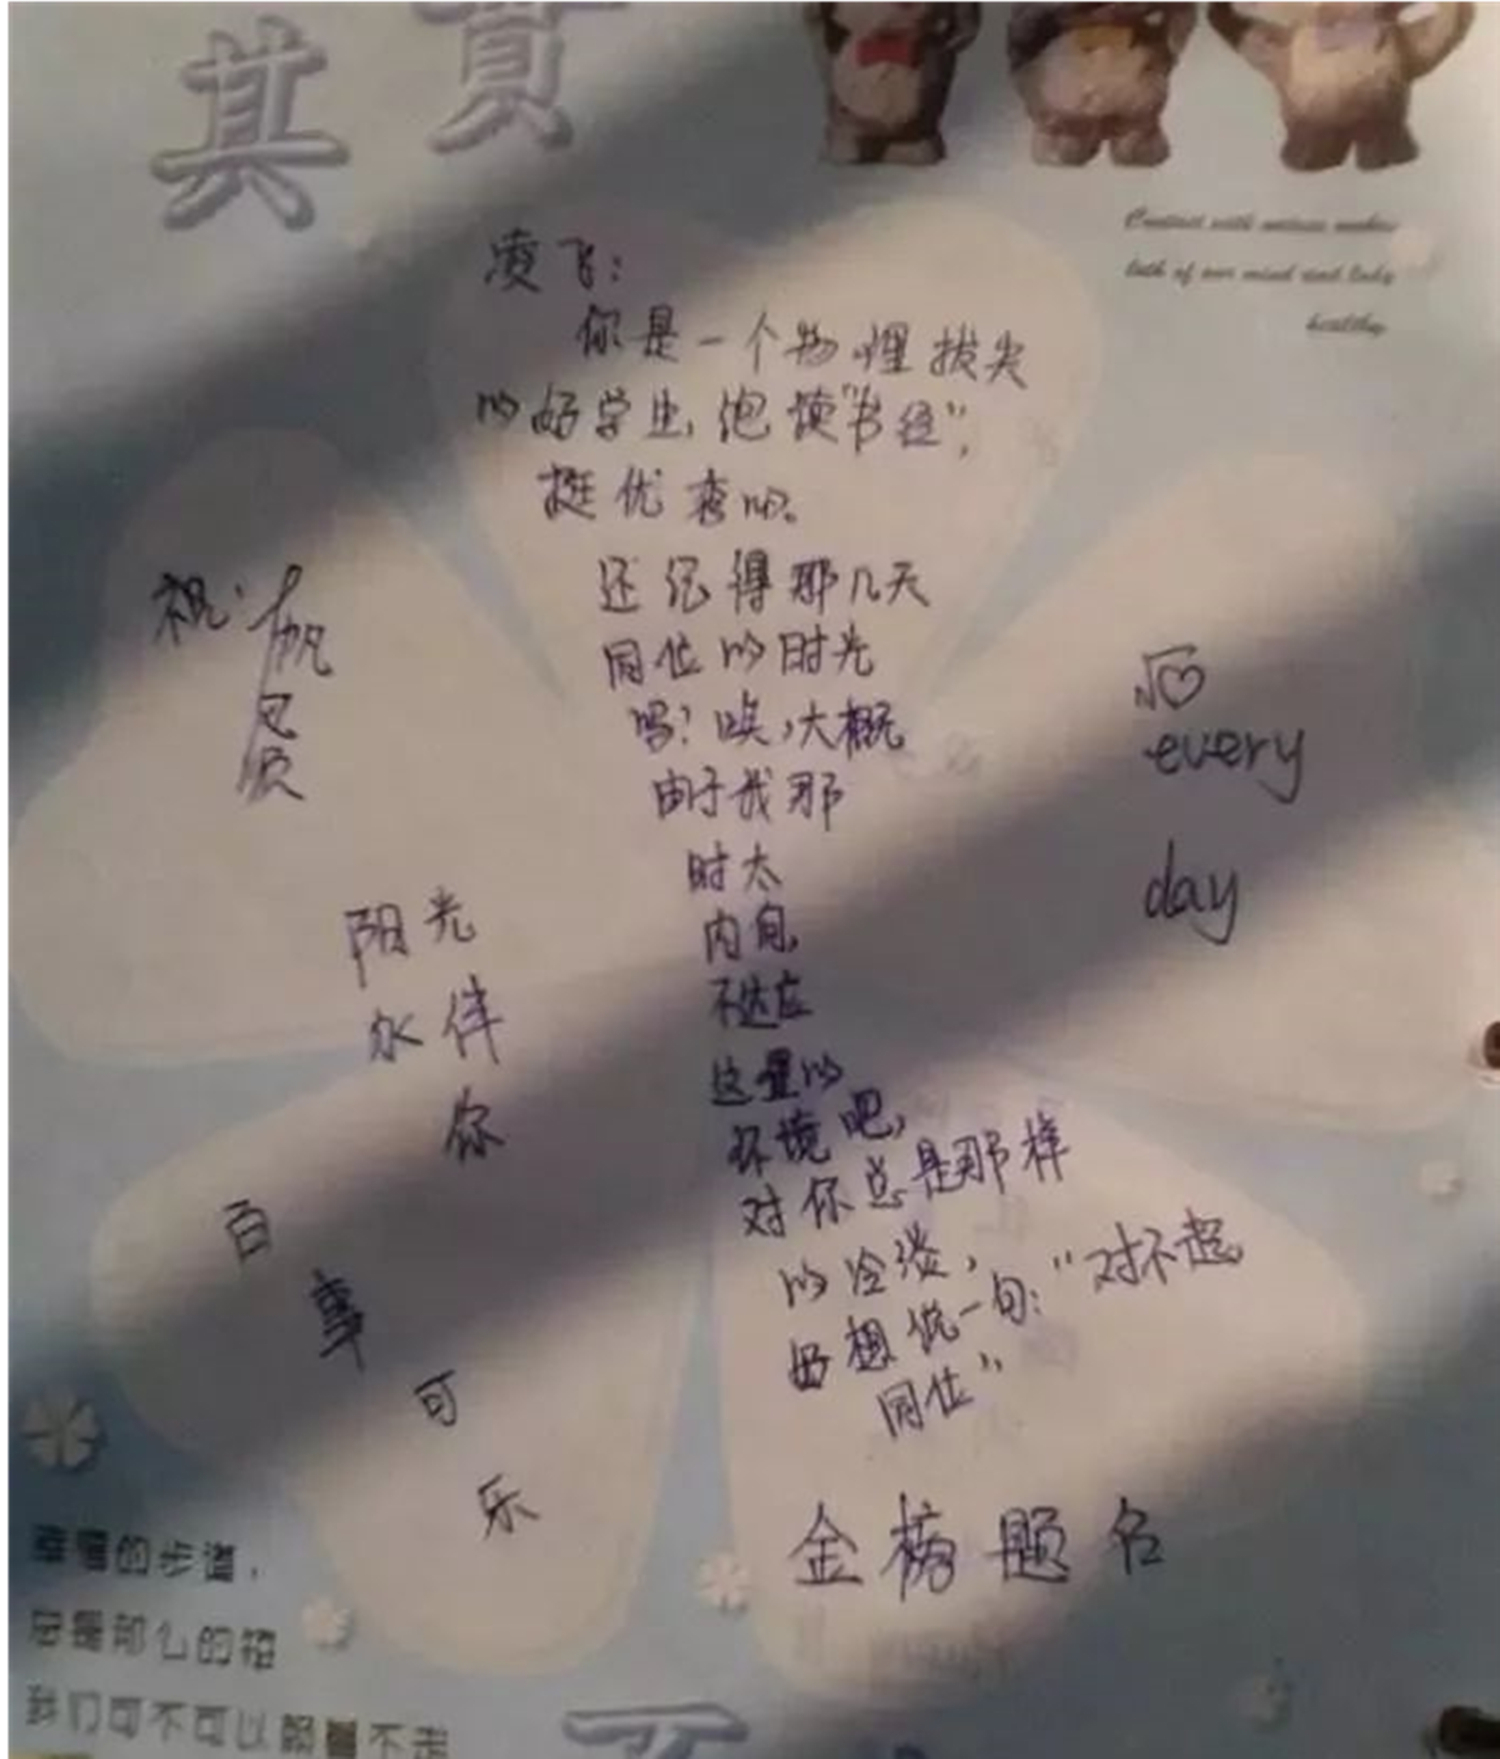 其實
Contact with nature makes
both of our mind and body
healthy
凌飞:
你是一个物理拔尖
的好学生,饱读“书经”,
挺优秀的。
还记得那几天
同位的时光
吗?唉,大概
由于我那
时太
内向,
不适应
这里的
环境吧,
对你总是那样
的冷淡,
好想说一句:“对不起
同位”
祝:
帆
风
顺
阳光
永伴
你
百
事
可
乐
every
day
金榜题名
幸福的步道,
总是那么的短
我们可不可以